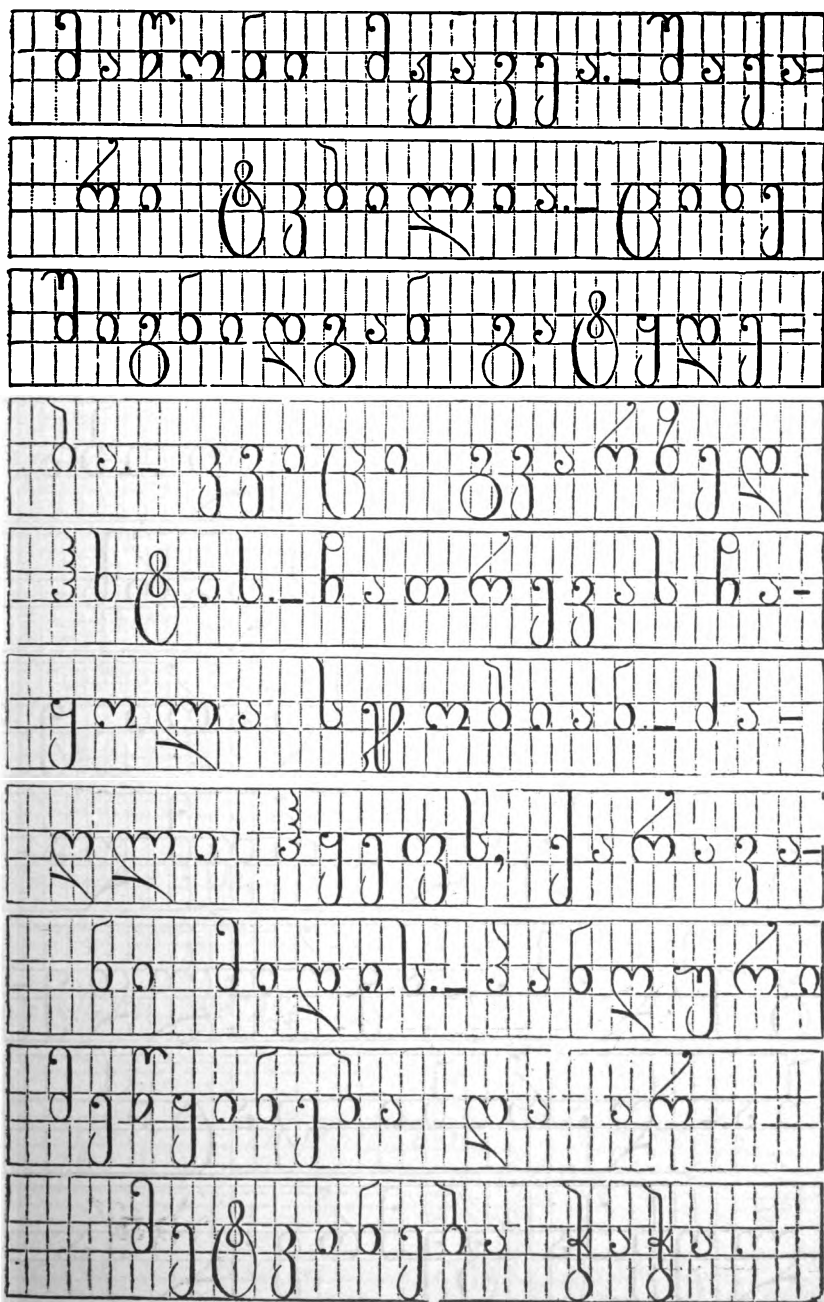 მაწონი მჟავეა.— შაქა-
რი ტკბილია.— ციხე
შიგნიდგან გატყდე-
ბა.— კვიცი გვარზედ
ჰხტის.— ჩათრევას ჩა-
ყოლა სჯობიან.— ძა-
ღლი ჰყეფს, ქარავა-
ნი მიდის.— პანღური
მეწყინება და არ
მეტკინება ჭაჭა.